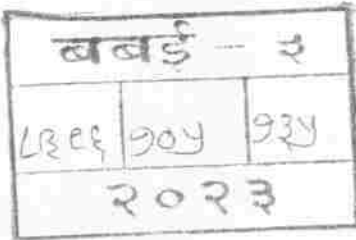 बबई - ३
८३९६ १०५ १३५
२०२३